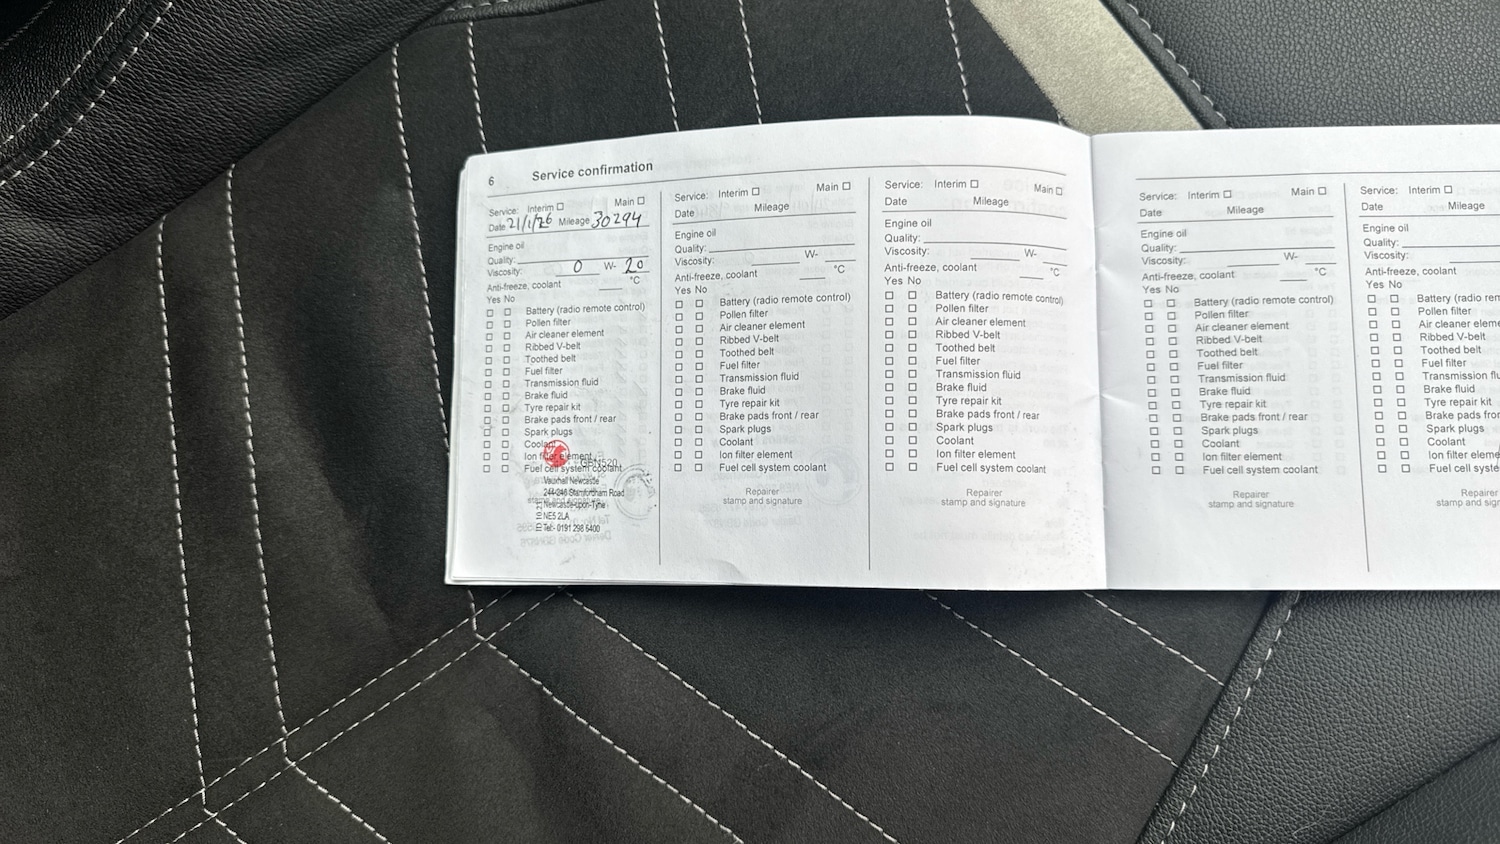 6 Service confirmation
Service: Interim ☐ Main ☐
Date 21/1/26 Mileage 30294
Engine oil
Quality:
Viscosity: 0 W- 20
Anti-freeze, coolant °C
Yes No
☐ ☐ Battery (radio remote control)
☐ ☐ Pollen filter
☐ ☐ Air cleaner element
☐ ☐ Ribbed V-belt
☐ ☐ Toothed belt
☐ ☐ Fuel filter
☐ ☐ Transmission fluid
☐ ☐ Brake fluid
☐ ☐ Tyre repair kit
☐ ☐ Brake pads front / rear
☐ ☐ Spark plugs
☐ ☐ Coolant
☐ ☐ Ion filter element
☐ ☐ Fuel cell system coolant
Vauxhall Newcastle
244-246 Stamfordham Road
stamp and signature
Newcastle-upon-Tyne
NE5 2LA
Tel:- 0191 298 6400
Service: Interim ☐ Main ☐
Date Mileage
Engine oil
Quality:
Viscosity: W-
Anti-freeze, coolant °C
Yes No
☐ ☐ Battery (radio remote control)
☐ ☐ Pollen filter
☐ ☐ Air cleaner element
☐ ☐ Ribbed V-belt
☐ ☐ Toothed belt
☐ ☐ Fuel filter
☐ ☐ Transmission fluid
☐ ☐ Brake fluid
☐ ☐ Tyre repair kit
☐ ☐ Brake pads front / rear
☐ ☐ Spark plugs
☐ ☐ Coolant
☐ ☐ Ion filter element
☐ ☐ Fuel cell system coolant
Repairer
stamp and signature
Service: Interim ☐ Main ☐
Date Mileage
Engine oil
Quality:
Viscosity: W-
Anti-freeze, coolant °C
Yes No
☐ ☐ Battery (radio remote control)
☐ ☐ Pollen filter
☐ ☐ Air cleaner element
☐ ☐ Ribbed V-belt
☐ ☐ Toothed belt
☐ ☐ Fuel filter
☐ ☐ Transmission fluid
☐ ☐ Brake fluid
☐ ☐ Tyre repair kit
☐ ☐ Brake pads front / rear
☐ ☐ Spark plugs
☐ ☐ Coolant
☐ ☐ Ion filter element
☐ ☐ Fuel cell system coolant
Repairer
stamp and signature
Service: Interim ☐ Main ☐
Date Mileage
Engine oil
Quality:
Viscosity: W-
Anti-freeze, coolant °C
Yes No
☐ ☐ Battery (radio remote control)
☐ ☐ Pollen filter
☐ ☐ Air cleaner element
☐ ☐ Ribbed V-belt
☐ ☐ Toothed belt
☐ ☐ Fuel filter
☐ ☐ Transmission fluid
☐ ☐ Brake fluid
☐ ☐ Tyre repair kit
☐ ☐ Brake pads front / rear
☐ ☐ Spark plugs
☐ ☐ Coolant
☐ ☐ Ion filter element
☐ ☐ Fuel cell system coolant
Repairer
stamp and signature
Service: Interim ☐
Date Mileage
Engine oil
Quality:
Viscosity:
Anti-freeze, coolant
Yes No
☐ ☐ Battery (radio
☐ ☐ Pollen filter
☐ ☐ Air cleaner
☐ ☐ Ribbed V-belt
☐ ☐ Toothed belt
☐ ☐ Fuel filter
☐ ☐ Transmission
☐ ☐ Brake fluid
☐ ☐ Tyre repair kit
☐ ☐ Brake pads
☐ ☐ Spark plugs
☐ ☐ Coolant
☐ ☐ Ion filter
☐ ☐ Fuel cell
stamp and